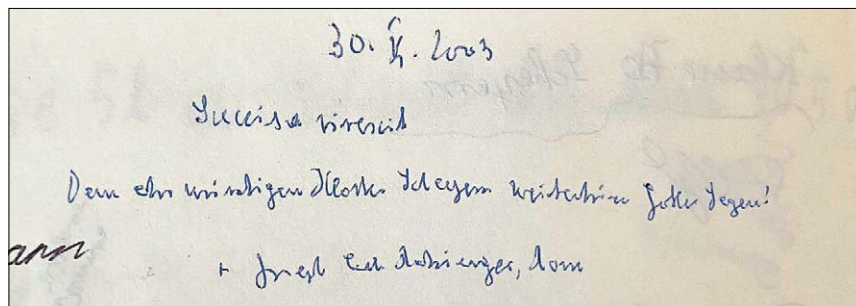 30. X. 2003
Succisa virescit
Dem ehrwürdigen Kloster Scheyern weiterhin Gottes Segen!
ann
+ Joseph Card. Ratzinger, Rom